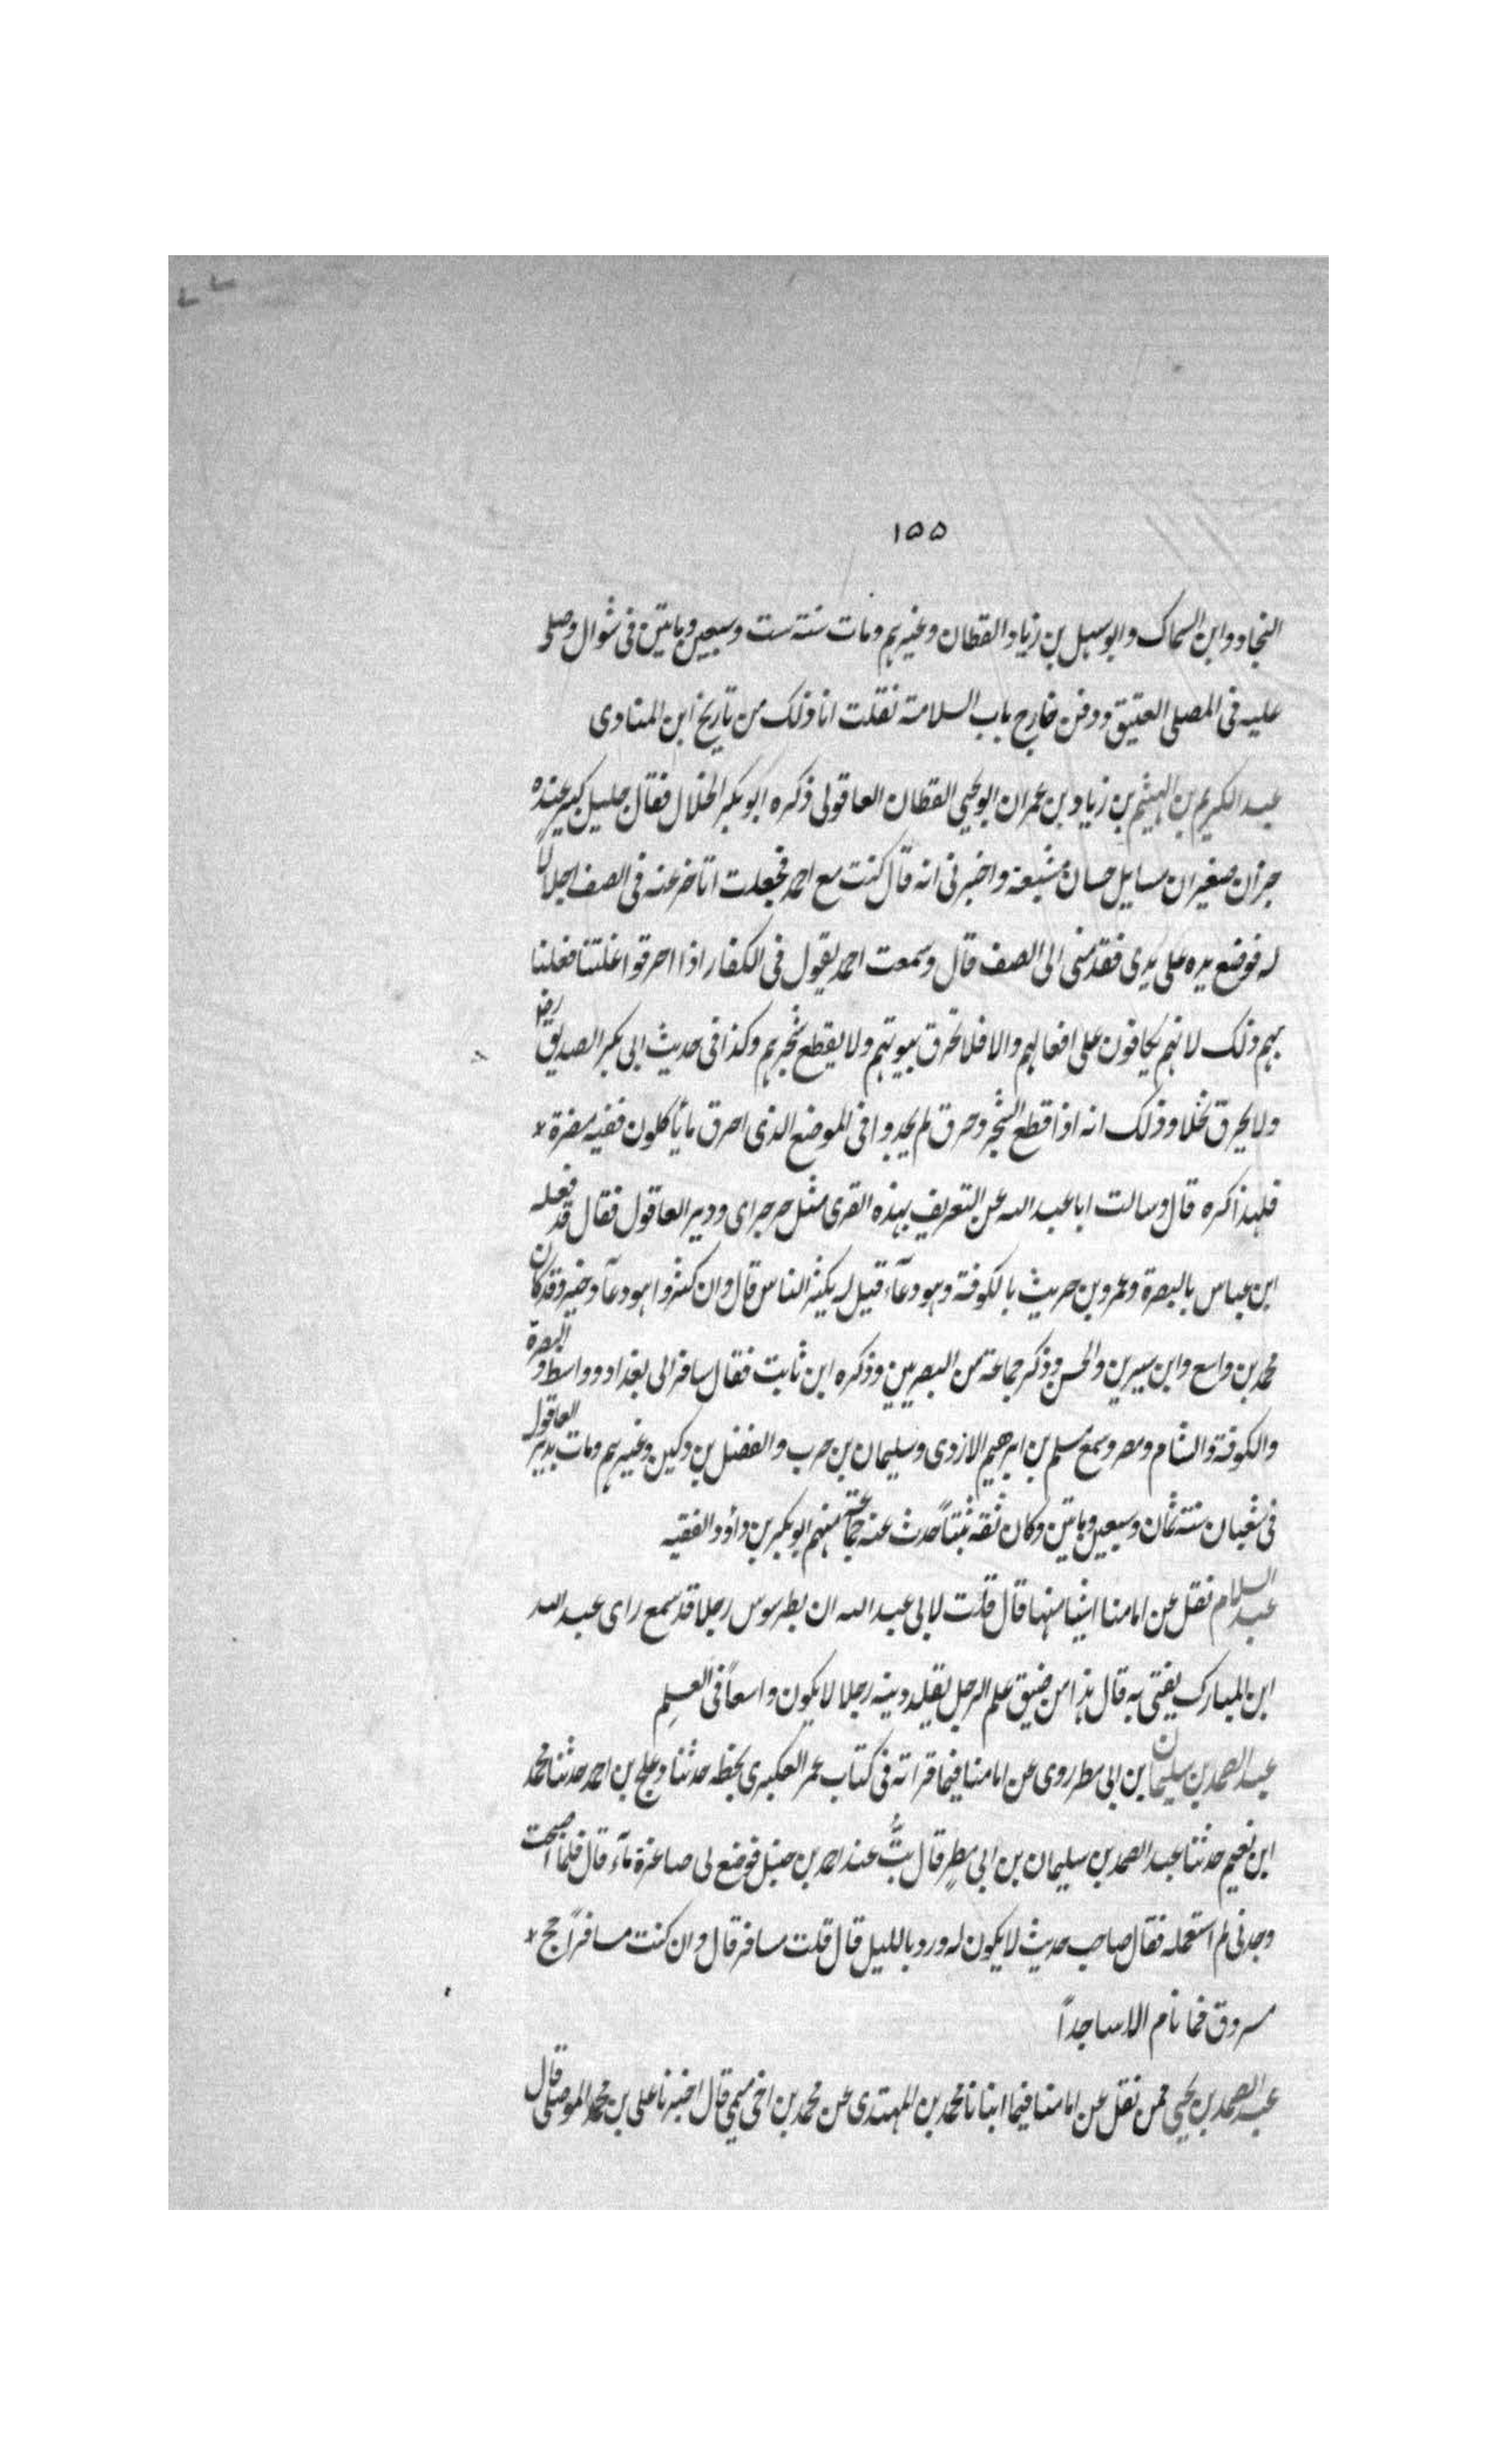 ١٥٥
النجاد وابن السماك وابو سهل بن زياد القطان وغيرهم ومات سنته ست وسبعين وماتين فى شوال وصلى
عليه فى المصلى العتيق ودفن خارج باب السلامة نقلت انا ذلك من تاريخ ابن المناوى
عبد الكريم بن الهيثم بن زياد بن عمران ابو يحيى القطان العاقولى ذكره ابو بكر الخلال فقال جليل كبير عنده
جزان صغيران مسايل حسان مشبعة واخبرنى انه قال كنت مع احمد فجعلت اتاخر عنه فى الصف اجلالاً
له فوضع يده على يدى فقدمنى الى الصف قال وسمعت احمد يقول فى الكفار اذا احرقوا غلتنا فعلنا
بهم ذلك لانهم يكافون على افعالهم والا فلا تحرق بيوتهم ولا يقطع شجرهم وكذا فى حديث ابى بكر الصديق رضـ
ولا يحرق نخلا وذلك انه اذا قطع الشجر وحرق لم يجدوا فى الموضع الذى احرق ما ياكلون ففيه مضرة *
فلهذا كره قال وسالت ابا عبد الله عن التعريف بهذه القرى مثل جرجراى ودير العاقول فقال قد فعله
ابن عباس بالبصرة وعمرو بن حريث بالكوفة وهو دعآء قيل له يكثر الناس قال وان كثروا هو دعآ وخير وقد كان
محمد بن واسع وابن سيرين والحسن وذكر جماعة من البصريين وذكره ابن ثابت فقال سافر الى بغداد وواسط والبصرة
والكوفة والشام ومصر وسمع مسلم بن ابرهيم الازدى وسليمان بن حرب والفضل بن دكين وغيرهم ومات بدير العاقول
فى شعبان سنته ثمان وسبعين وماتين وكان ثقة ثبتاً حدث عنه جماعة منهم ابو بكر بن داؤد الفقيه
عبد السلام نقل عن امامنا اشيا منها قال قلت لابى عبد الله ان بطرسوس رجلا قد سمع راى عبد الله
ابن المبارك يفتى به قال هذا من ضيق علم الرجل يقلد دينه رجلا لا يكون واسعاً فى العلم
عبد الصمد بن سليمان ابن ابى مطر روى عن امامنا فيما قراته فى كتاب عمر العكبرى بخطه حدثنا دعلج بن احمد حدثنا محمد
ابن نعيم حدثنا عبد الصمد بن سليمان بن ابى مطرٍ قال بتُّ عند احمد بن حنبل فوضع لى صاغرة مآء قال فلما اصبحت
وجدنى لم استعمله فقال صاحب حديث لا يكون له ورد بالليل قال قلت مسافر قال وان كنت مسافراً حج *
مسروق فما نام الا ساجداً
عبد الصمد بن يحيى فمن نقل عن امامنا فيما انبانا محمد بن المهتدى عن محمد بن اخى ميمى قال اخبرنا على بن محمد الموصلى قال